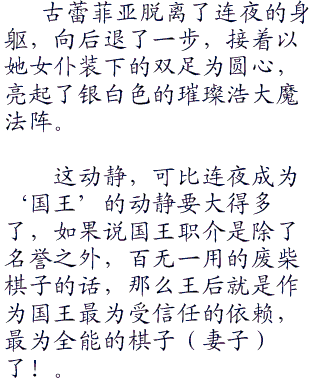 古蕾菲亚脱离了连夜的身
躯，向后退了一步，接着以
她女仆装下的双足为圆心，
亮起了银白色的璀璨浩大魔
法阵。
这动静，可比连夜成为
‘国王’的动静要大得多
了，如果说国王职介是除了
名誉之外，百无一用的废柴
棋子的话，那么王后就是作
为国王最为受信任的依赖，
最为全能的棋子（妻子）
了！。